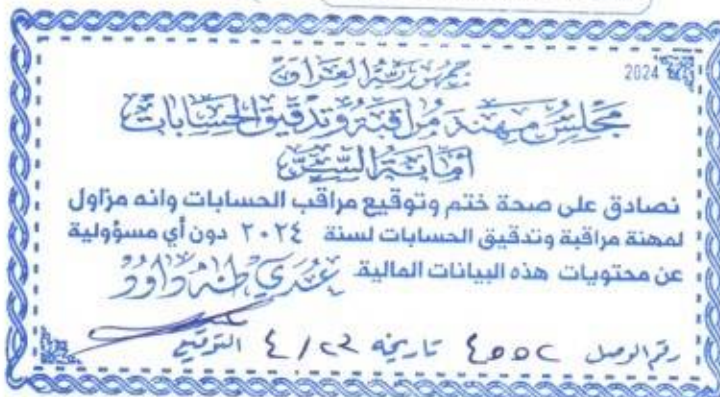 2024
جمهورية العراق
مجلس مهنة مراقبة وتدقيق الحسابات
أمانة السر
نصادق على صحة ختم وتوقيع مراقب الحسابات وانه مزاول
لمهنة مراقبة وتدقيق الحسابات لسنة ٢٠٢٤ دون أي مسؤولية
عن محتويات هذه البيانات المالية عدي طه داوود
رقم الوصل ٤٥٥٢ تاريخه ٤/٢٣ التوقيع